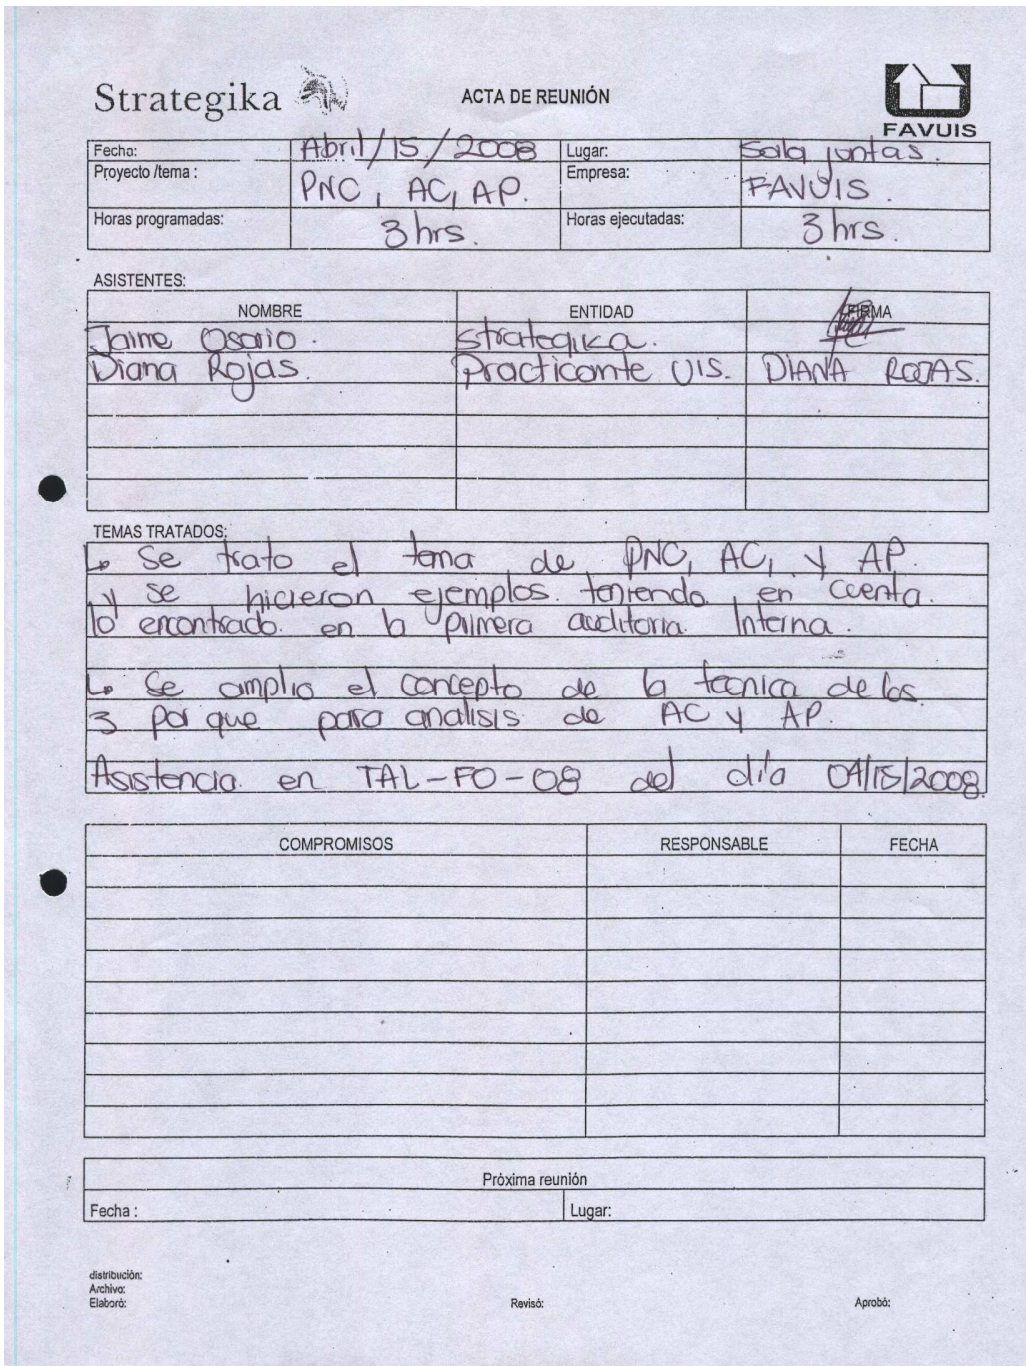 Strategika
ACTA DE REUNIÓN
FAVUIS
Fecha: Abril/15/2008 Lugar: Sala juntas.
Proyecto /tema : PNC, AC, AP. Empresa: FAVUIS.
Horas programadas: 3 hrs. Horas ejecutadas: 3 hrs.
ASISTENTES:
NOMBRE ENTIDAD FIRMA
Jaime Osorio. Strategika.
Diana Rojas. Practicante UIS. DIANA ROJAS.
TEMAS TRATADOS:
↳ Se trato el tema de PNC, AC, y AP
y se hicieron ejemplos teniendo en cuenta.
lo encontrado. en la primera auditoria Interna.
↳ Se amplio el concepto de la tecnica de los
3 por que para analisis de AC y AP.
Asistencia en TAL-FO-08 del día 04/15/2008.
COMPROMISOS RESPONSABLE FECHA
Próxima reunión
Fecha : Lugar:
distribución:
Archivo:
Elaboró: Revisó: Aprobó: